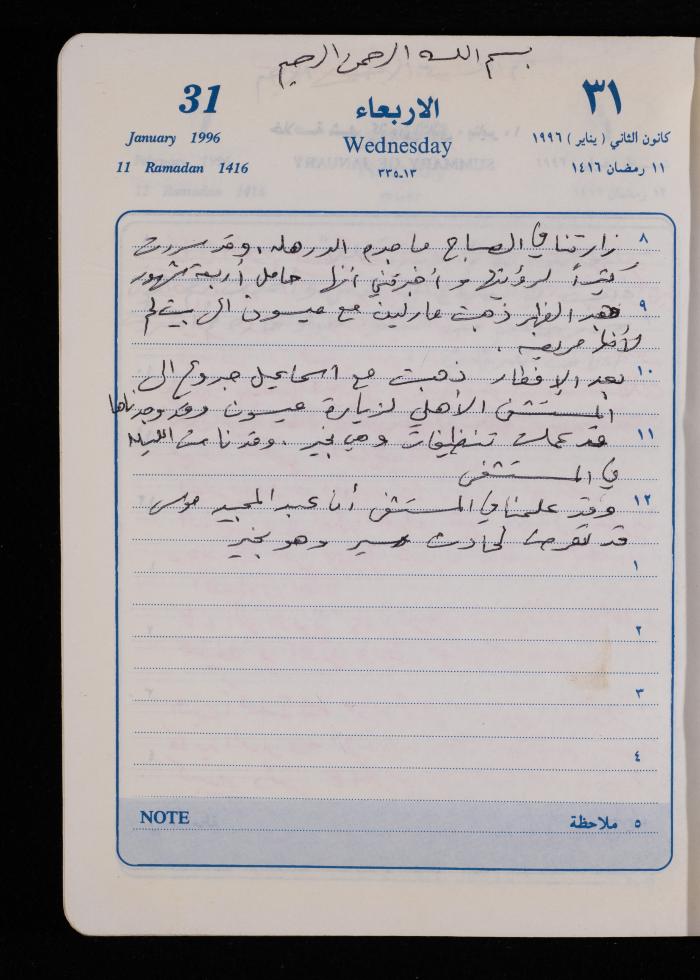 بسم الله الرحمن الرحيم
31 الاربعاء ٣١
January 1996 Wednesday كانون الثاني ( يناير ) ١٩٩٦
11 Ramadan 1416 ٣٣٥-١٣ ١١ رمضان ١٤١٦
٨ زارتنا في الصباح ماجده الدرهله . وقد سررت
كثيراً لرؤيتها وأخبرتني أنها حامل أربعة شهور
٩ بعد الظهر ذهبت مارلين مع ميسون الى بيت لم
لأنها مريضه .
١٠ بعد الإفطار ذهبت مع اسماعيل جدوع الى
المستشفى الأهلي لزيارة ميسون وقد وجدناها
١١ قد عملت تنظيفات وهي بخير . وقد نامت الليله
في المستشفى
١٢ وقد علمنا في المستشفى أن عبد المجيد موسى
قد تعرض لحادث سير وهو بخير
١
٢
٣
٤
NOTE ٥ ملاحظة